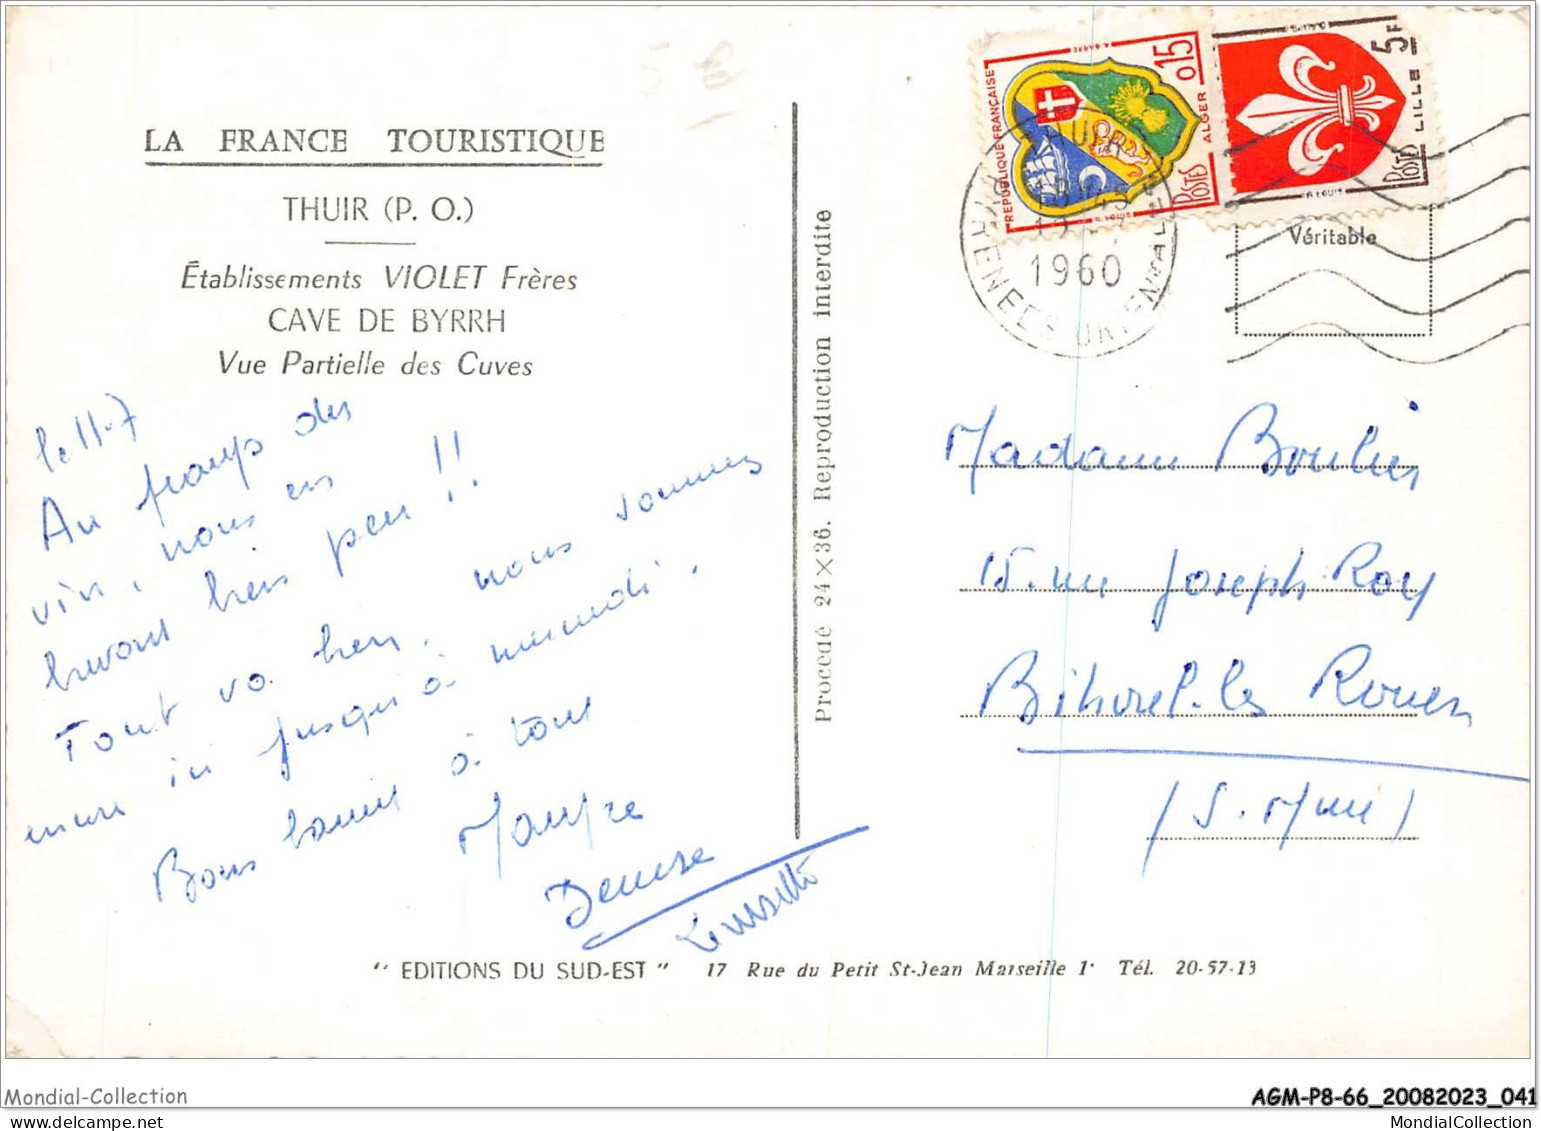 5 €
LA FRANCE TOURISTIQUE
THUIR (P. O.)
Établissements VIOLET Frères
CAVE DE BYRRH
Vue Partielle des Cuves
le 11-7
Au pays du
vin, nous en
buvons bien peu !!
Tout va bien. nous sommes
encore ici jusqu'à mercredi.
Bons baisers à tous
Denise
Procédé 24 × 36. Reproduction interdite
" EDITIONS DU SUD-EST " 17 Rue du Petit St-Jean Marseille 1er Tél. 20-57-13
REPUBLIQUE FRANÇAISE
0,15
ALGER
POSTES
5F
LILLE
POSTES
1960
PYRENEES ORIENTALES
Véritable
Madame
15. rue Joseph Roy
Bihorel-les Rouen
(S. Mme)
Mondial-Collection
AGM-P8-66_20082023_041
MondialCollection